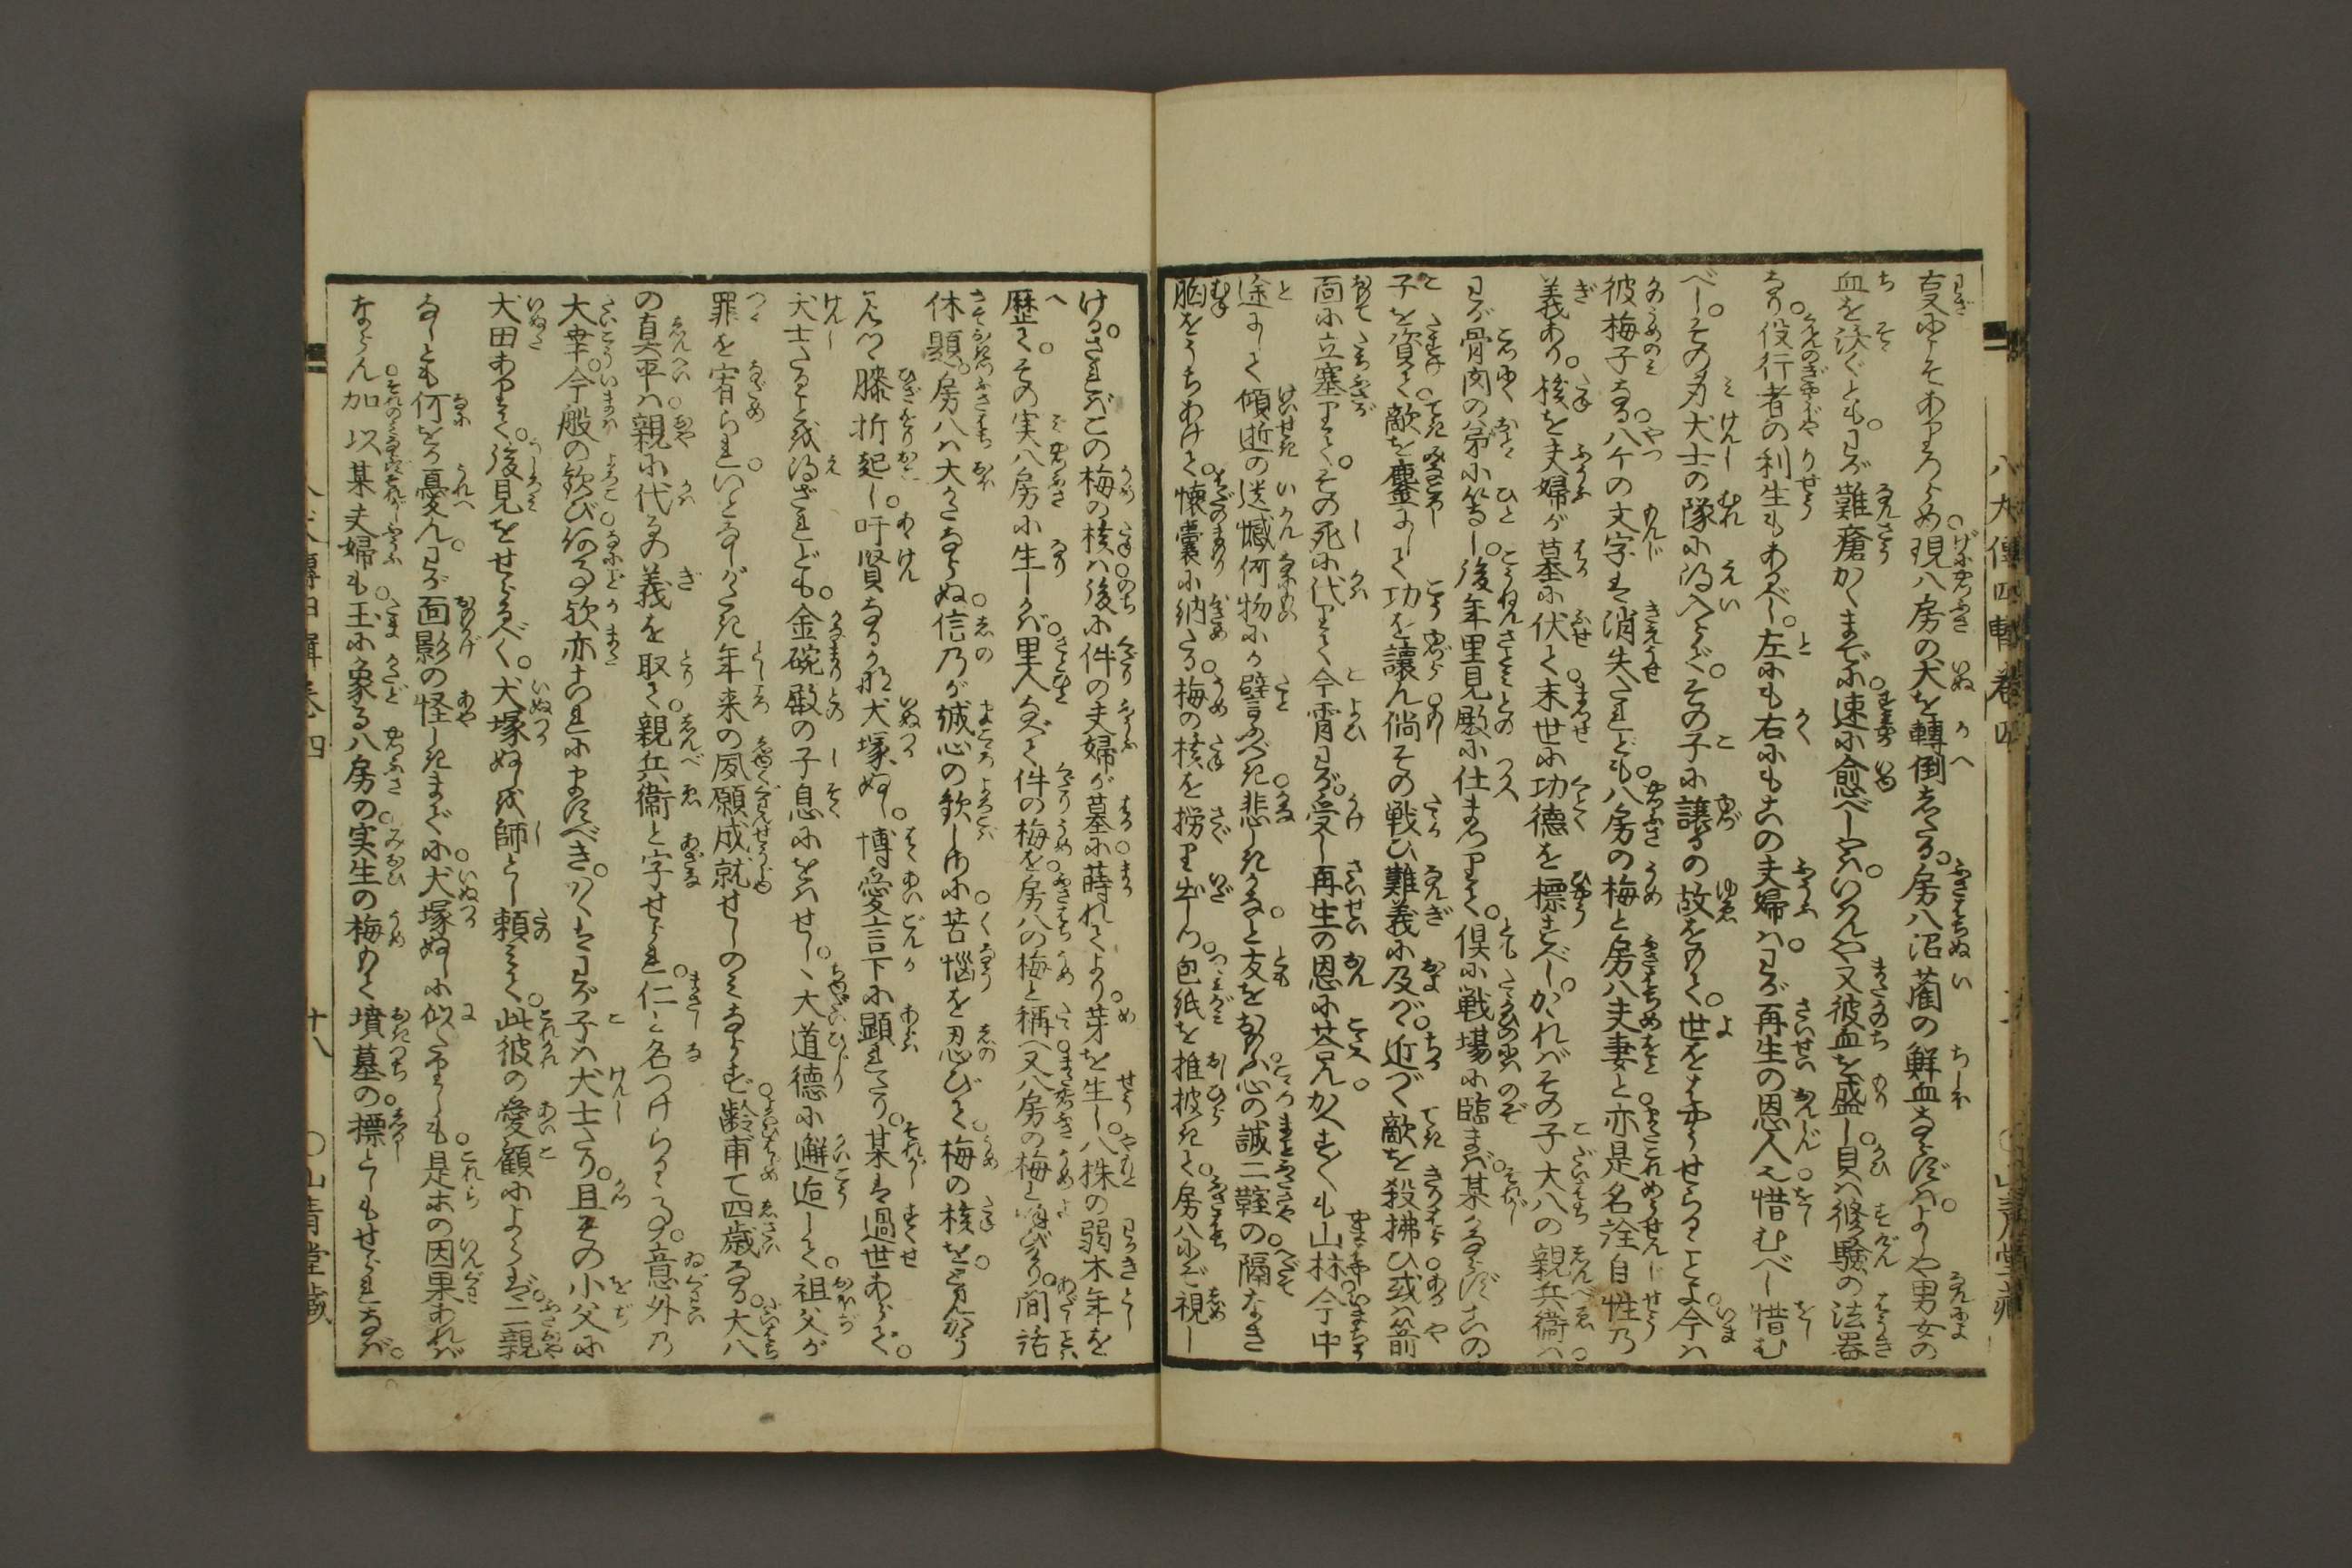 八犬傳四輯卷四
○山青堂藏
妄にこそあらめ。現八房の犬を轉倒したる。房八沼藺の鮮血ならずは。よしや男女の
血を沃ぐとも。わが難瘡かくまでに速に愈べしやは。いはんや又彼血を盛し貝は修驗の法器
なり。役行者の利生もあるべし。左にも右にもこの夫婦は。わが再生の恩人也。惜むべし惜む
べし。その身犬士の隊に得入らず。その子に讓るの故をもて。世をはやうせらるゝことよ。今は
彼梅子なる。八个の文字は消失たれども。八房の梅と房八夫妻と。亦是名詮自性の
義あり。核を夫婦が墓に伏て。末世に功德を標すべし。かゝればその子大八の親兵衞は。
わが骨肉の弟に等し。後年里見殿に仕まつりて。倶に戰場に臨まば。某かならずこの
子を資て。敵を鏖にして功を讓ん。倘その戰ひ難義に及び。近づく敵を殺拂ひ。或は箭
面に立塞りて。その死に代りて。今宵わが。受し再生の恩に荅ん。かへす〴〵も山林。今中
途にして傾逝の遺憾何物にか譬ふべき。悲しきかなと友をおもふ。心の誠二鞘の。隔なき
胸をうちあけて。懷囊に納たる。梅の核を撈り出しつ。包紙を推披きて。房八にぞ視し
ける。さればこの梅の核は。後に件の夫婦が墓に蒔れてより。芽を生し。八株の弱木年を
歴て。その実八房に生しかば。里人なべて件の梅を。房八の梅と稱へ。又八房の梅と喚びけり。間話
休題。房八は大かたならぬ。信乃が誠心の歡しさに。苦惱を忍びて。梅の核を。とみかう
見つゝ膝折起し。吁賢なるかな犬塚ぬし。博愛言下に顯れたり。某は過世あらで。
犬士たることを得ざれども。金碗殿の子息にをはせし。ヽ大道德に邂逅して。祖父が
罪を宥られ。いとなしがたき年來の。夙願成就せしのみならず。齡甫て四歳なる。大八
の真平は。親に代るの義を取て。親兵衞と字せられ。仁と名つけらるゝ事。意外の
大幸。今般の歡び。何事歟亦これにますべき。かくはわが子は犬士たり。且その小父に
犬田ありて。後見をせらるべく。犬塚ぬしを師とし頼みて。此彼の愛顧によらば。二親
なしとも何をか憂ん。わが面影の怪しきまでに。犬塚ぬしに似たりしも。是等の因果あれば
ならん加以某夫婦も。玉に象る八房の。実生の梅もて墳墓の。標ともせられなば。
八犬傳四輯卷四
十八
○山青堂藏